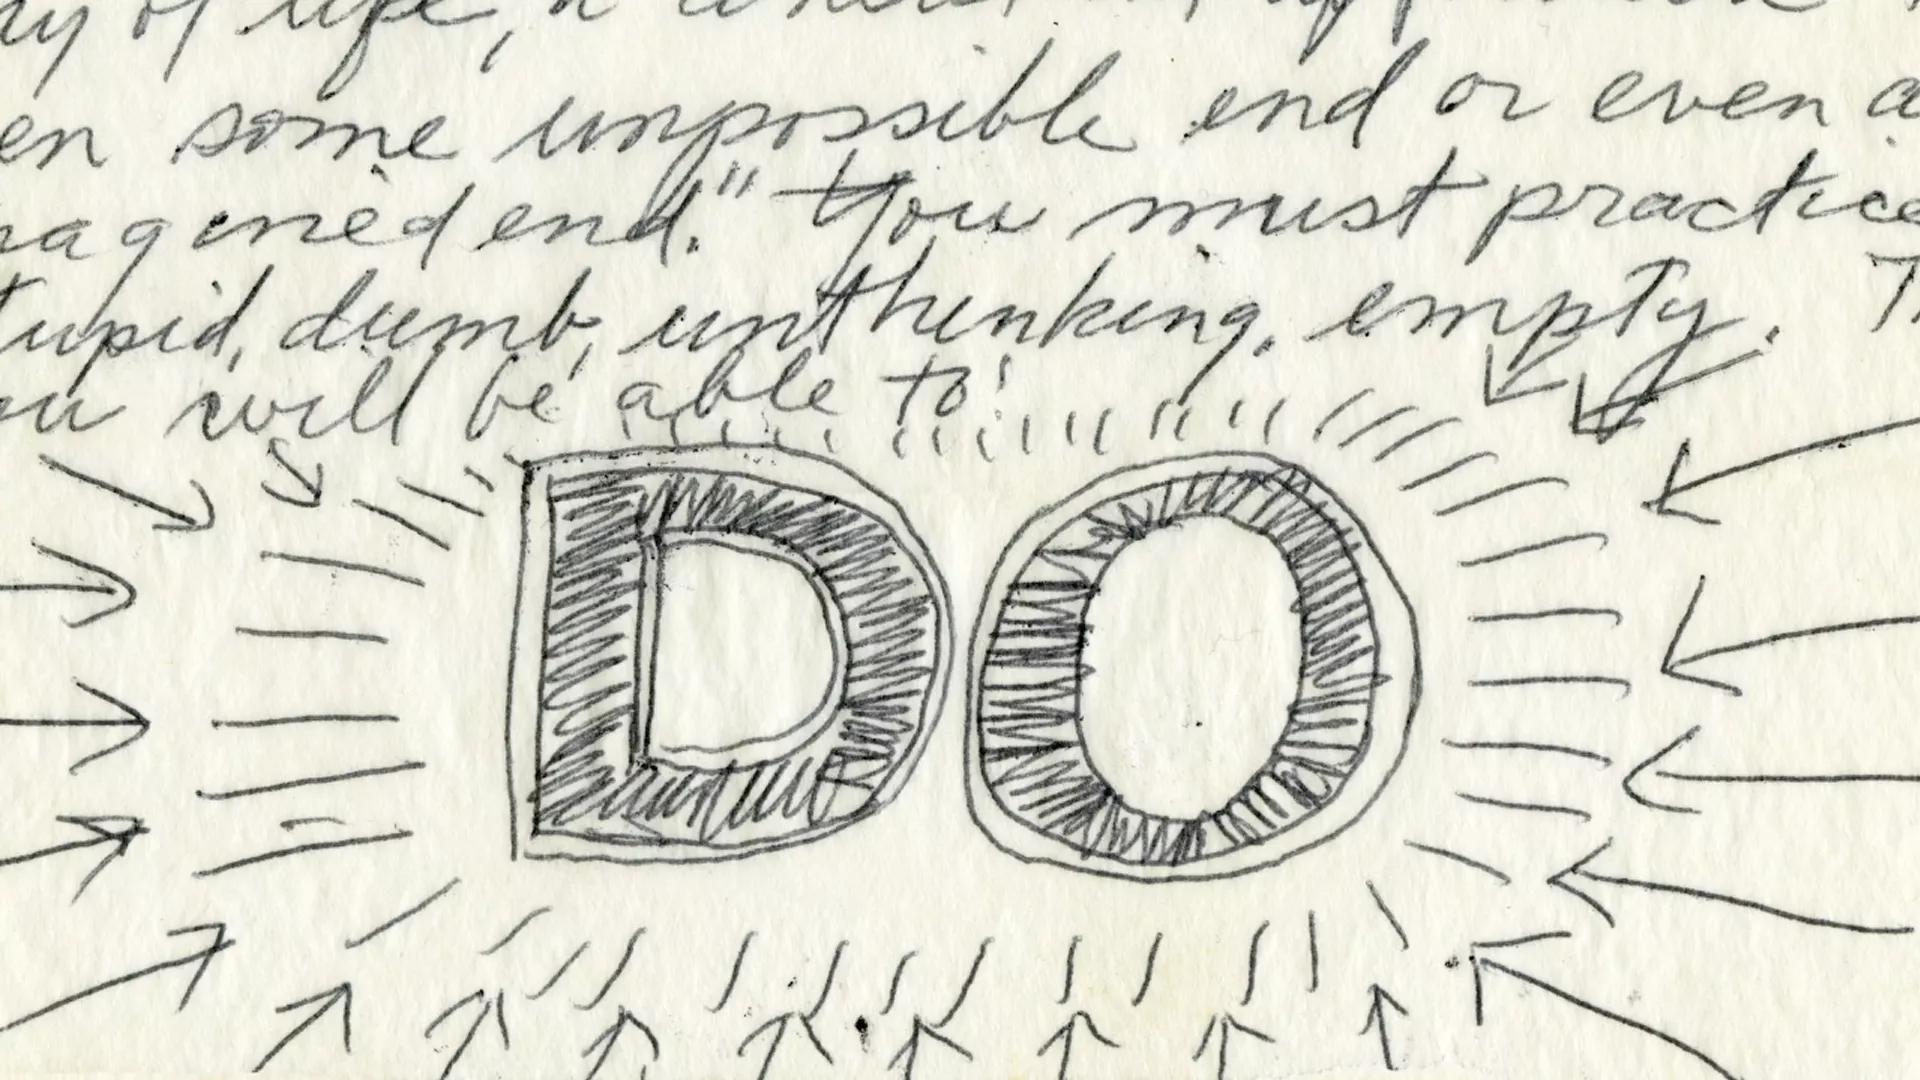 ay of life, a
en some impossible end or even a
magened end." You must practice
tupid, dumb, unthinking, empty. Th
ou will be able to
DO